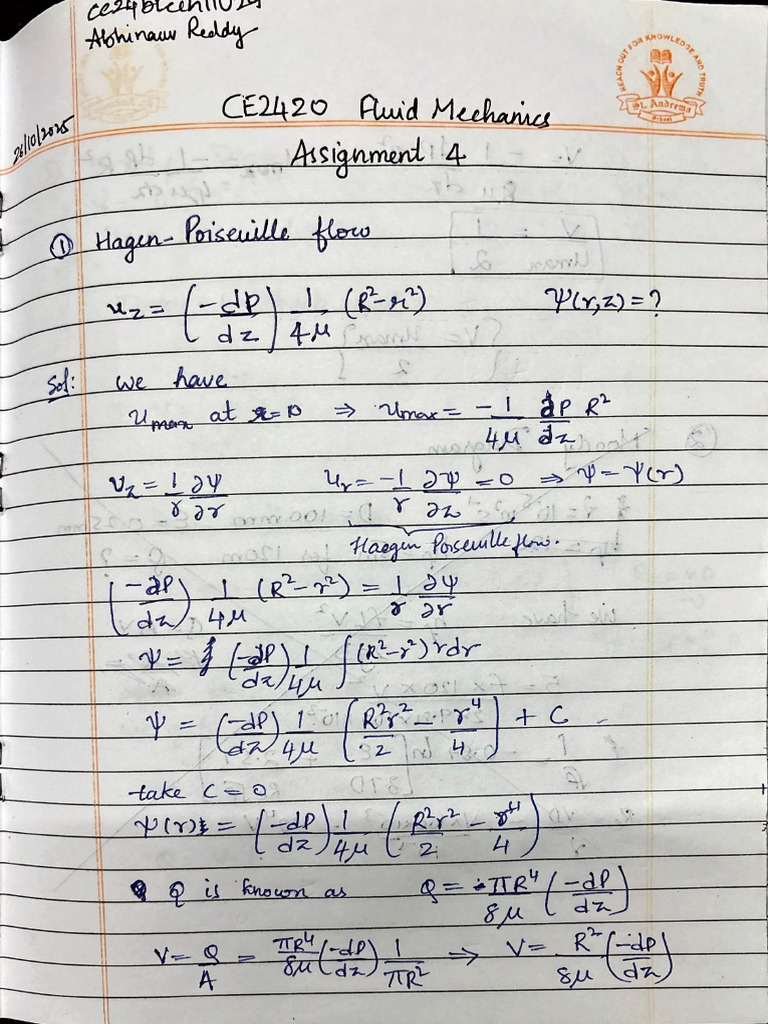 ce24btech11029
Abhinauv Reddy
REACH OUT FOR KNOWLEDGE AND TRUTH
St. Andrews
School
26/10/2025
CE2420 Fluid Mechanics
Assignment 4
① Hagen-Poiseuille flow
u_z = (-dP/dz) 1/4μ (R²-r²) Ψ(r,z) = ?
Sol: we have
u_max at r=0 ⇒ u_max = -1/4μ dP/dz R²
v_z = 1/r ∂Ψ/∂r u_r = -1/r ∂Ψ/∂z = 0 ⇒ Ψ = Ψ(r)
Haegen Poiseuille flow.
(-dP/dz) 1/4μ (R²-r²) = 1/r ∂Ψ/∂r
Ψ = (-dP/dz) 1/4μ ∫(R²-r²) r dr
Ψ = (-dP/dz) 1/4μ [R²r²/2 - r⁴/4] + C
take C = 0
Ψ(r) = (-dP/dz) 1/4μ (R²r²/2 - r⁴/4)
Q is known as Q = πR⁴/8μ (-dP/dz)
V = Q/A = πR⁴/8μ (-dP/dz) 1/πR² ⇒ V = R²/8μ (-dP/dz)